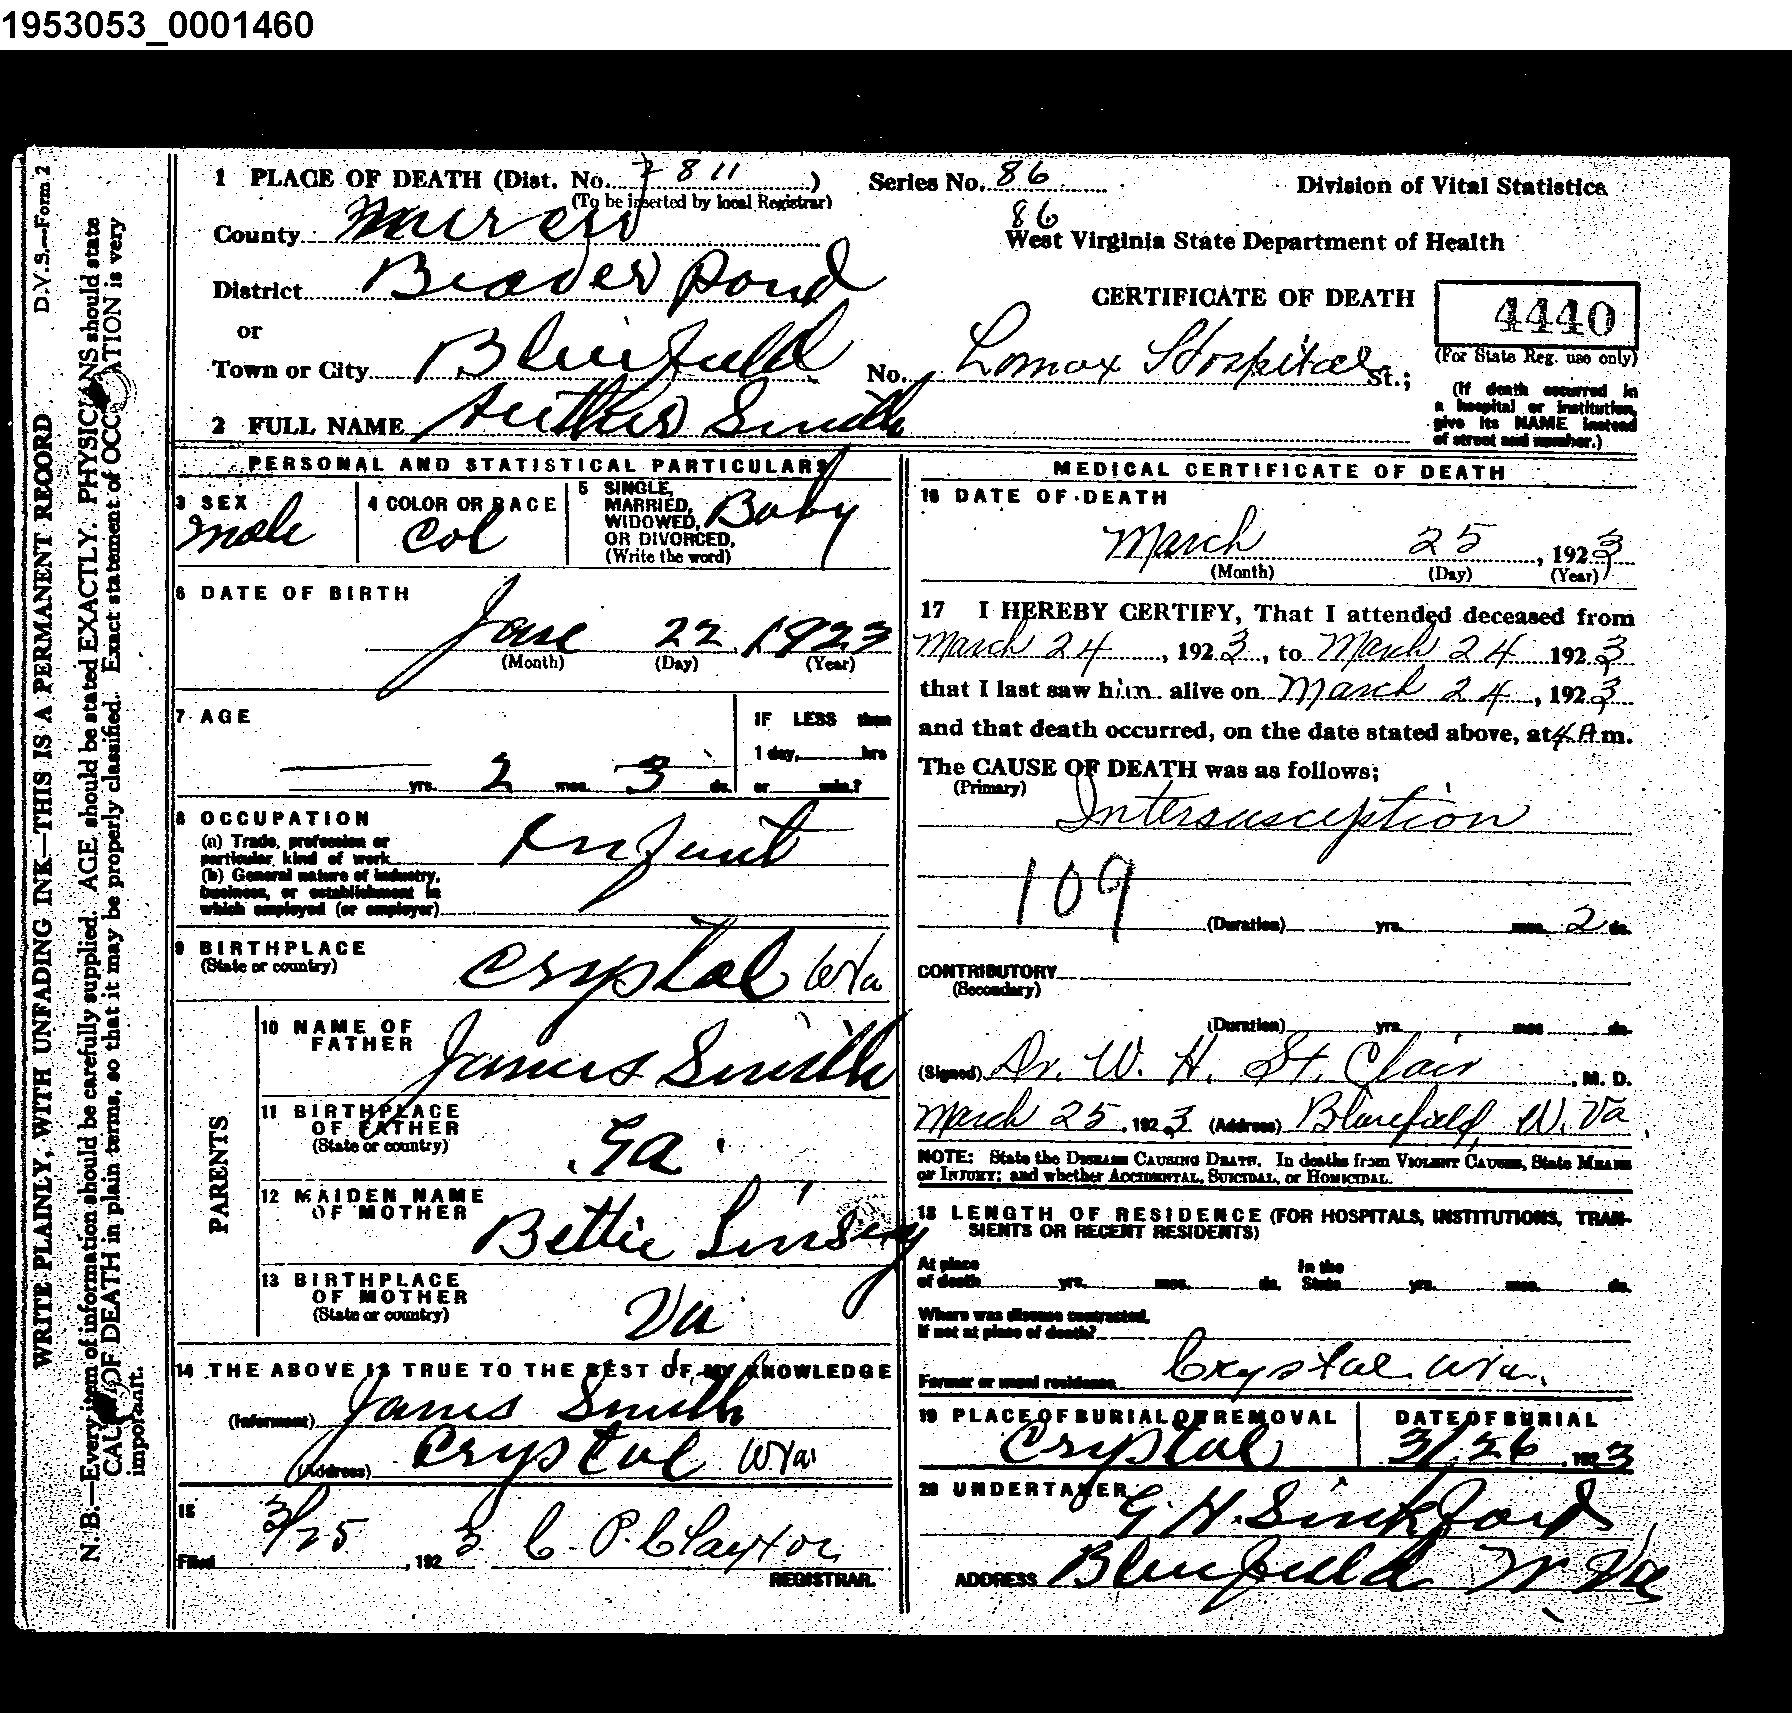 1953053_0001460
D.V.S.—Form 2
WRITE PLAINLY, WITH UNFADING INK—THIS IS A PERMANENT RECORD
N. B.—Every item of information should be carefully supplied. AGE should be stated EXACTLY. PHYSICIANS should state
CAUSE OF DEATH in plain terms, so that it may be properly classified. Exact statement of OCCUPATION is very
important.
1 PLACE OF DEATH (Dist. No. 7811) Series No. 86 Division of Vital Statistics
(To be inserted by local Registrar) 86
County West Virginia State Department of Health
District Beaver Pond
CERTIFICATE OF DEATH 4440
or
Town or City Bluefield No. Lomax Hospital St.; (For State Reg. use only)
(If death occurred in
a hospital or institution,
give its NAME instead
of street and number.)
2 FULL NAME Auther Smith
PERSONAL AND STATISTICAL PARTICULARS
3 SEX 4 COLOR OR RACE 5 SINGLE,
MARRIED,
WIDOWED,
OR DIVORCED,
(Write the word)
male col Baby
6 DATE OF BIRTH
Jane 22 1923
(Month) (Day) (Year)
7 AGE IF LESS than
1 day, hrs
yrs. 2 mos. 3 ds. or min.?
8 OCCUPATION
(a) Trade, profession or
particular kind of work
(b) General nature of industry,
business, or establishment in
which employed (or employer)
Infant
9 BIRTHPLACE
(State or country) Crystal WVa
PARENTS
10 NAME OF
FATHER James Smith
11 BIRTHPLACE
OF FATHER
(State or country) Ga
12 MAIDEN NAME
OF MOTHER Bettie Linsey
13 BIRTHPLACE
OF MOTHER
(State or country) Va
14 THE ABOVE IS TRUE TO THE BEST OF MY KNOWLEDGE
(Informant) James Smith
(Address) Crystal WVa
15
Filed 3/25, 1923 C. P. Clayton
REGISTRAR.
MEDICAL CERTIFICATE OF DEATH
16 DATE OF DEATH
March 25, 1923
(Month) (Day) (Year)
17 I HEREBY CERTIFY, That I attended deceased from
March 24, 1923, to March 24 1923
that I last saw him alive on March 24, 1923
and that death occurred, on the date stated above, at 4 A m.
The CAUSE OF DEATH was as follows;
(Primary) Intersusception
109
(Duration) yrs. mos. 2 ds.
CONTRIBUTORY
(Secondary)
(Duration) yrs. mos ds.
(Signed) Dr. W. H. St. Clair, M. D.
March 25, 1923 (Address) Bluefield, W. Va.
NOTE: State the DISEASE CAUSING DEATH. In deaths from VIOLENT CAUSES, State MEANS
OF INJURY; and whether ACCIDENTAL, SUICIDAL, or HOMICIDAL.
18 LENGTH OF RESIDENCE (FOR HOSPITALS, INSTITUTIONS, TRAN-
SIENTS OR RECENT RESIDENTS)
At place In the
of death yrs. mos. ds. State yrs. mos. ds.
Where was disease contracted,
if not at place of death?
Former or usual residence Crystal WVa.
19 PLACE OF BURIAL OR REMOVAL DATE OF BURIAL
Crystal 3/26, 1923
20 UNDERTAKER G. H. Sinkford
ADDRESS Bluefield W Va